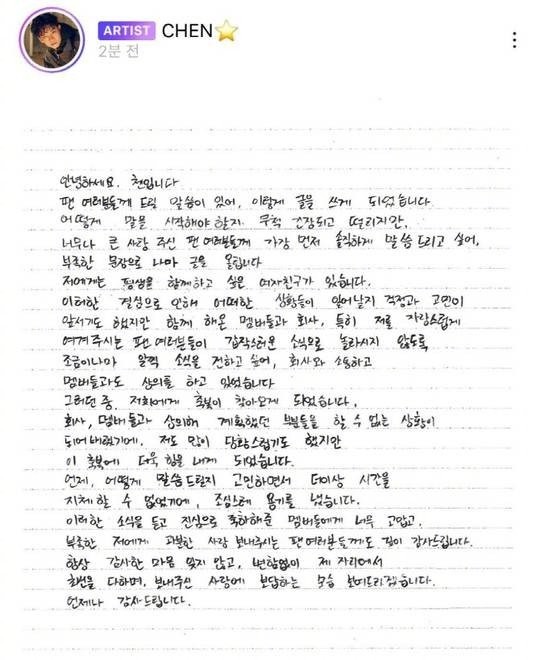 ARTIST CHEN⭐
2분 전
안녕하세요. 첸입니다
팬 여러분들께 드릴 말씀이 있어, 이렇게 글을 쓰게 되었습니다.
어떻게 말을 시작해야 할지 무척 긴장되고 떨리지만,
너무나 큰 사랑 주신 팬여러분들께 가장 먼저 솔직하게 말씀드리고 싶어,
부족한 문장으로 나마 글을 올립니다
저에게는 평생을 함께하고 싶은 여자친구가 있습니다.
이러한 결심으로 인해 어떠한 상황들이 일어날지 걱정과 고민이
앞서기도 했지만 함께 해온 멤버들과 회사, 특히 저를 자랑스럽게
여겨주시는 팬 여러분들이 갑작스러운 소식으로 놀라시지 않도록
조금이나마 일찍 소식을 전하고 싶어, 회사와 소통하고
멤버들과도 상의를 하고 있었습니다
그러던 중, 저희에게 축복이 찾아오게 되었습니다.
회사, 멤버들과 상의해 계획했던 부분들을 할 수 없는 상황이
되어버렸기에, 저도 많이 당황스럽기도 했지만
이 축복에 더욱 힘을 내게 되었습니다.
언제, 어떻게 말씀드릴지 고민하면서 더이상 시간을
지체할 수 없었기에, 조심스레 용기를 냈습니다.
이러한 소식을 듣고 진심으로 축하해준 멤버들에게 너무 고맙고,
부족한 저에게 과분한 사랑 보내주시는 팬여러분들께도 깊이 감사드립니다.
항상 감사한 마음 잊지 않고, 변함없이 제 자리에서
최선을 다하며, 보내주신 사랑에 보답하는 모습 보여드리겠습니다.
언제나 감사드립니다.